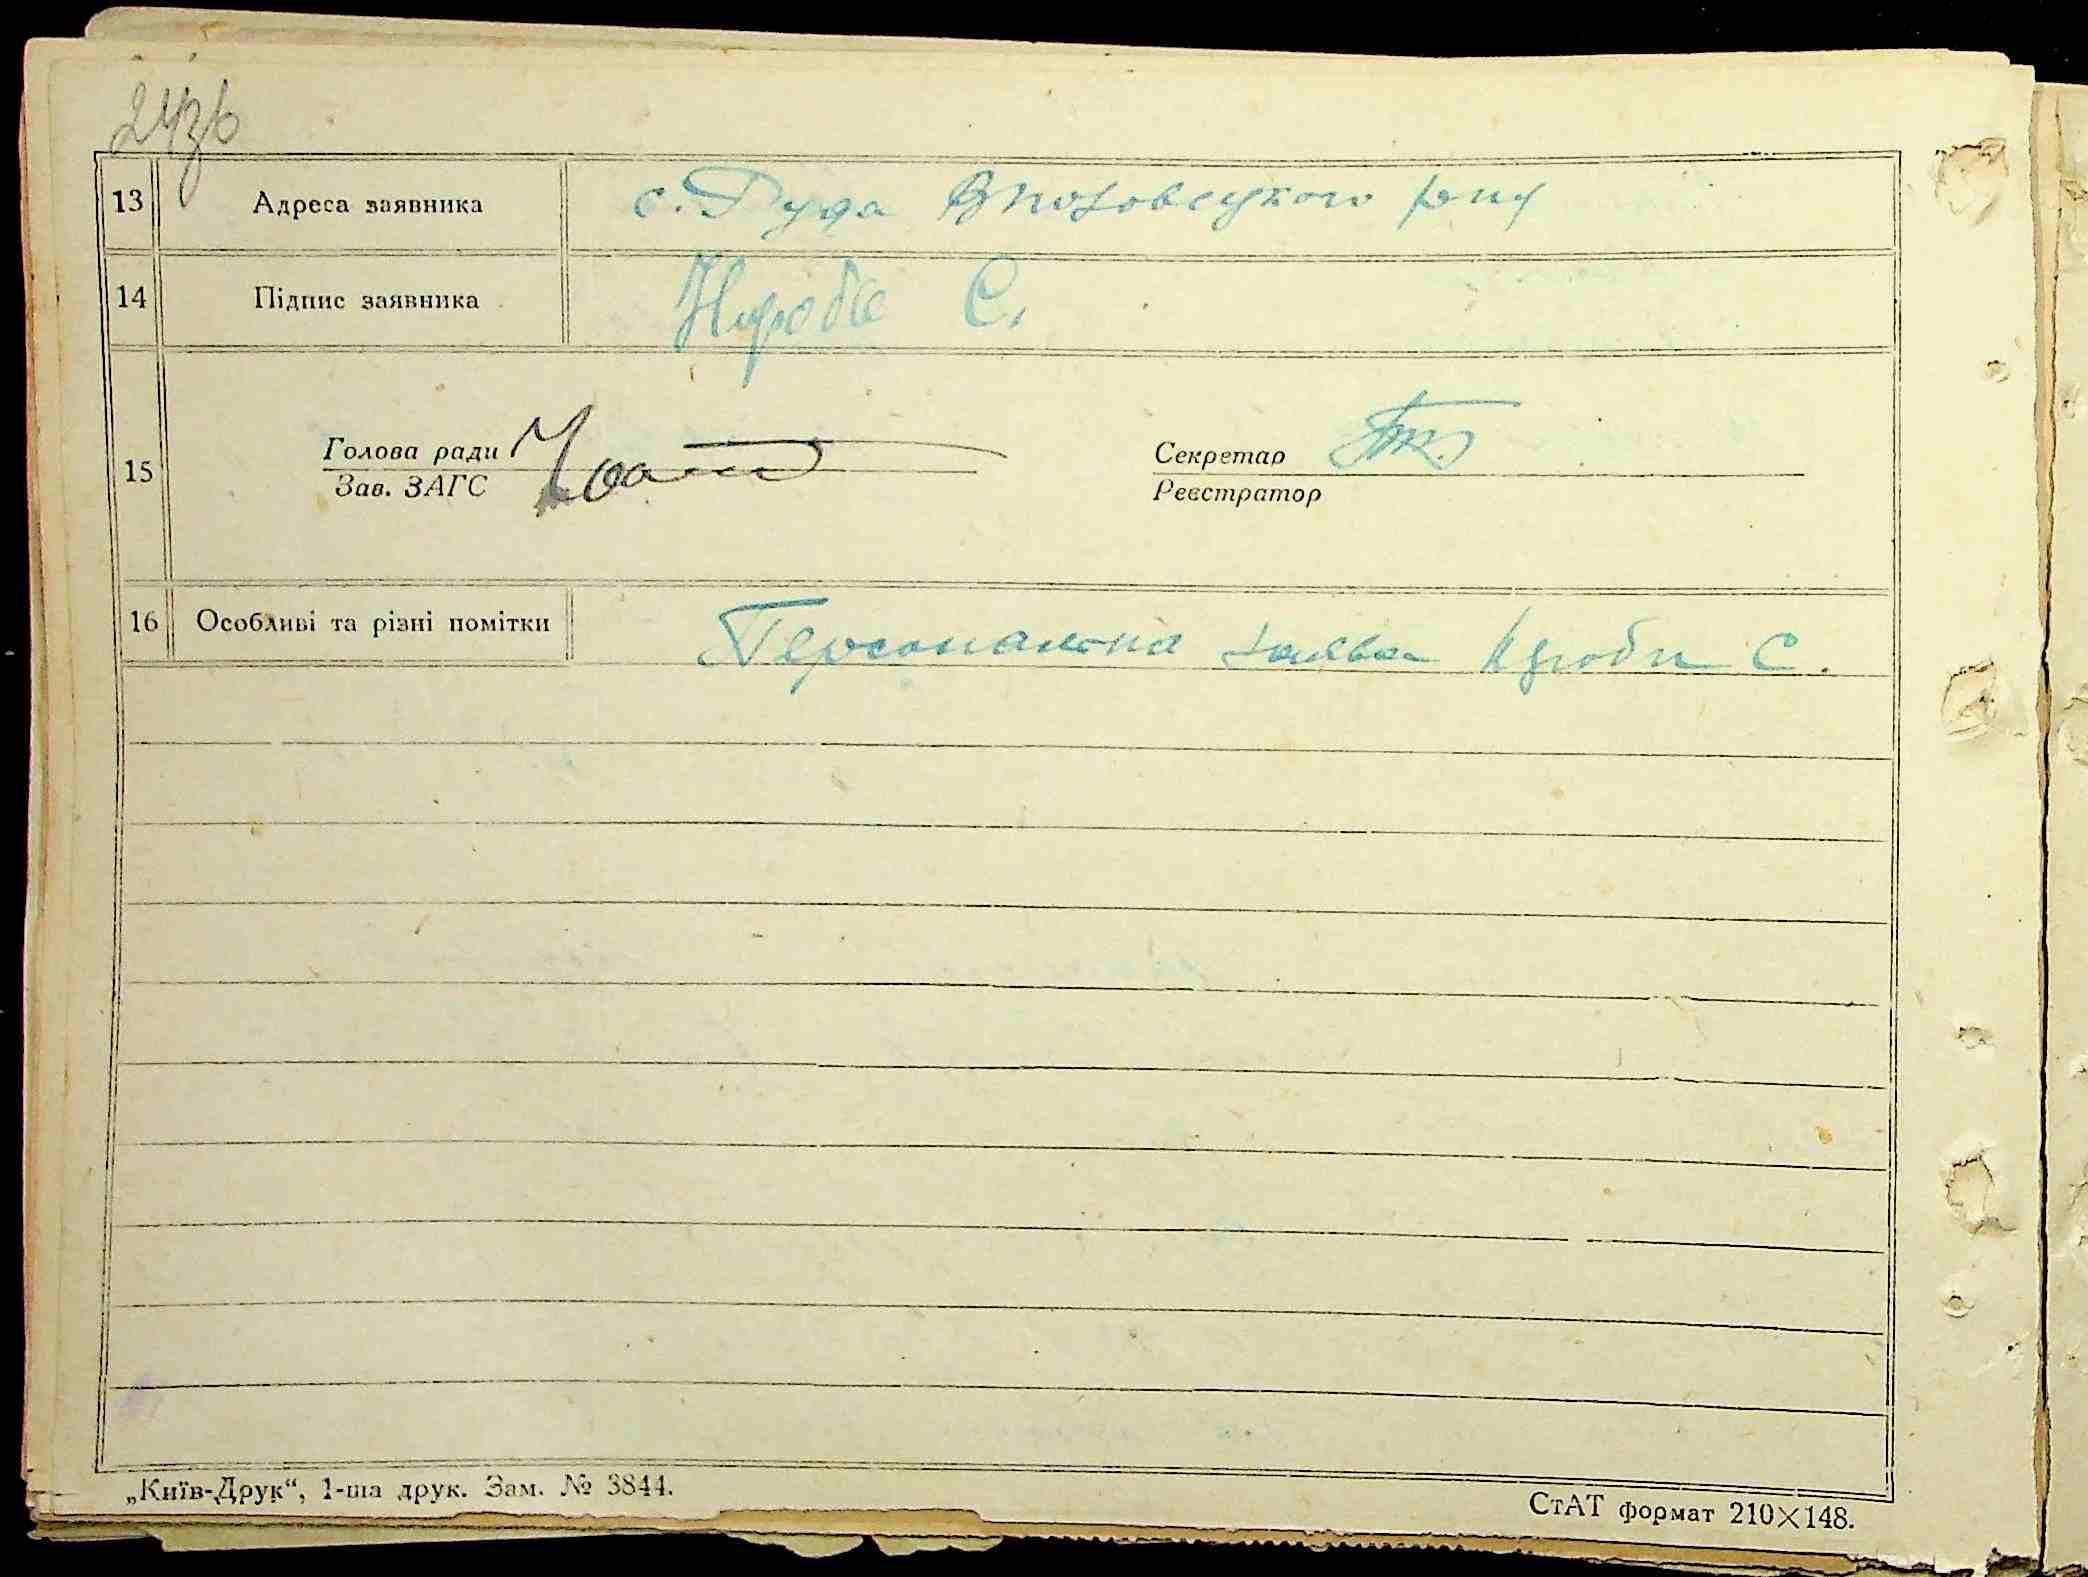 243б
13 Адреса заявника с. Руда
14 Підпис заявника С.
15 Голова ради Секретар
Зав. ЗАГС Реєстратор
16 Особливі та різні помітки Персональна заява С.
„Київ-Друк“, 1-ша друк. Зам. № 3844. СтАТ формат 210×148.